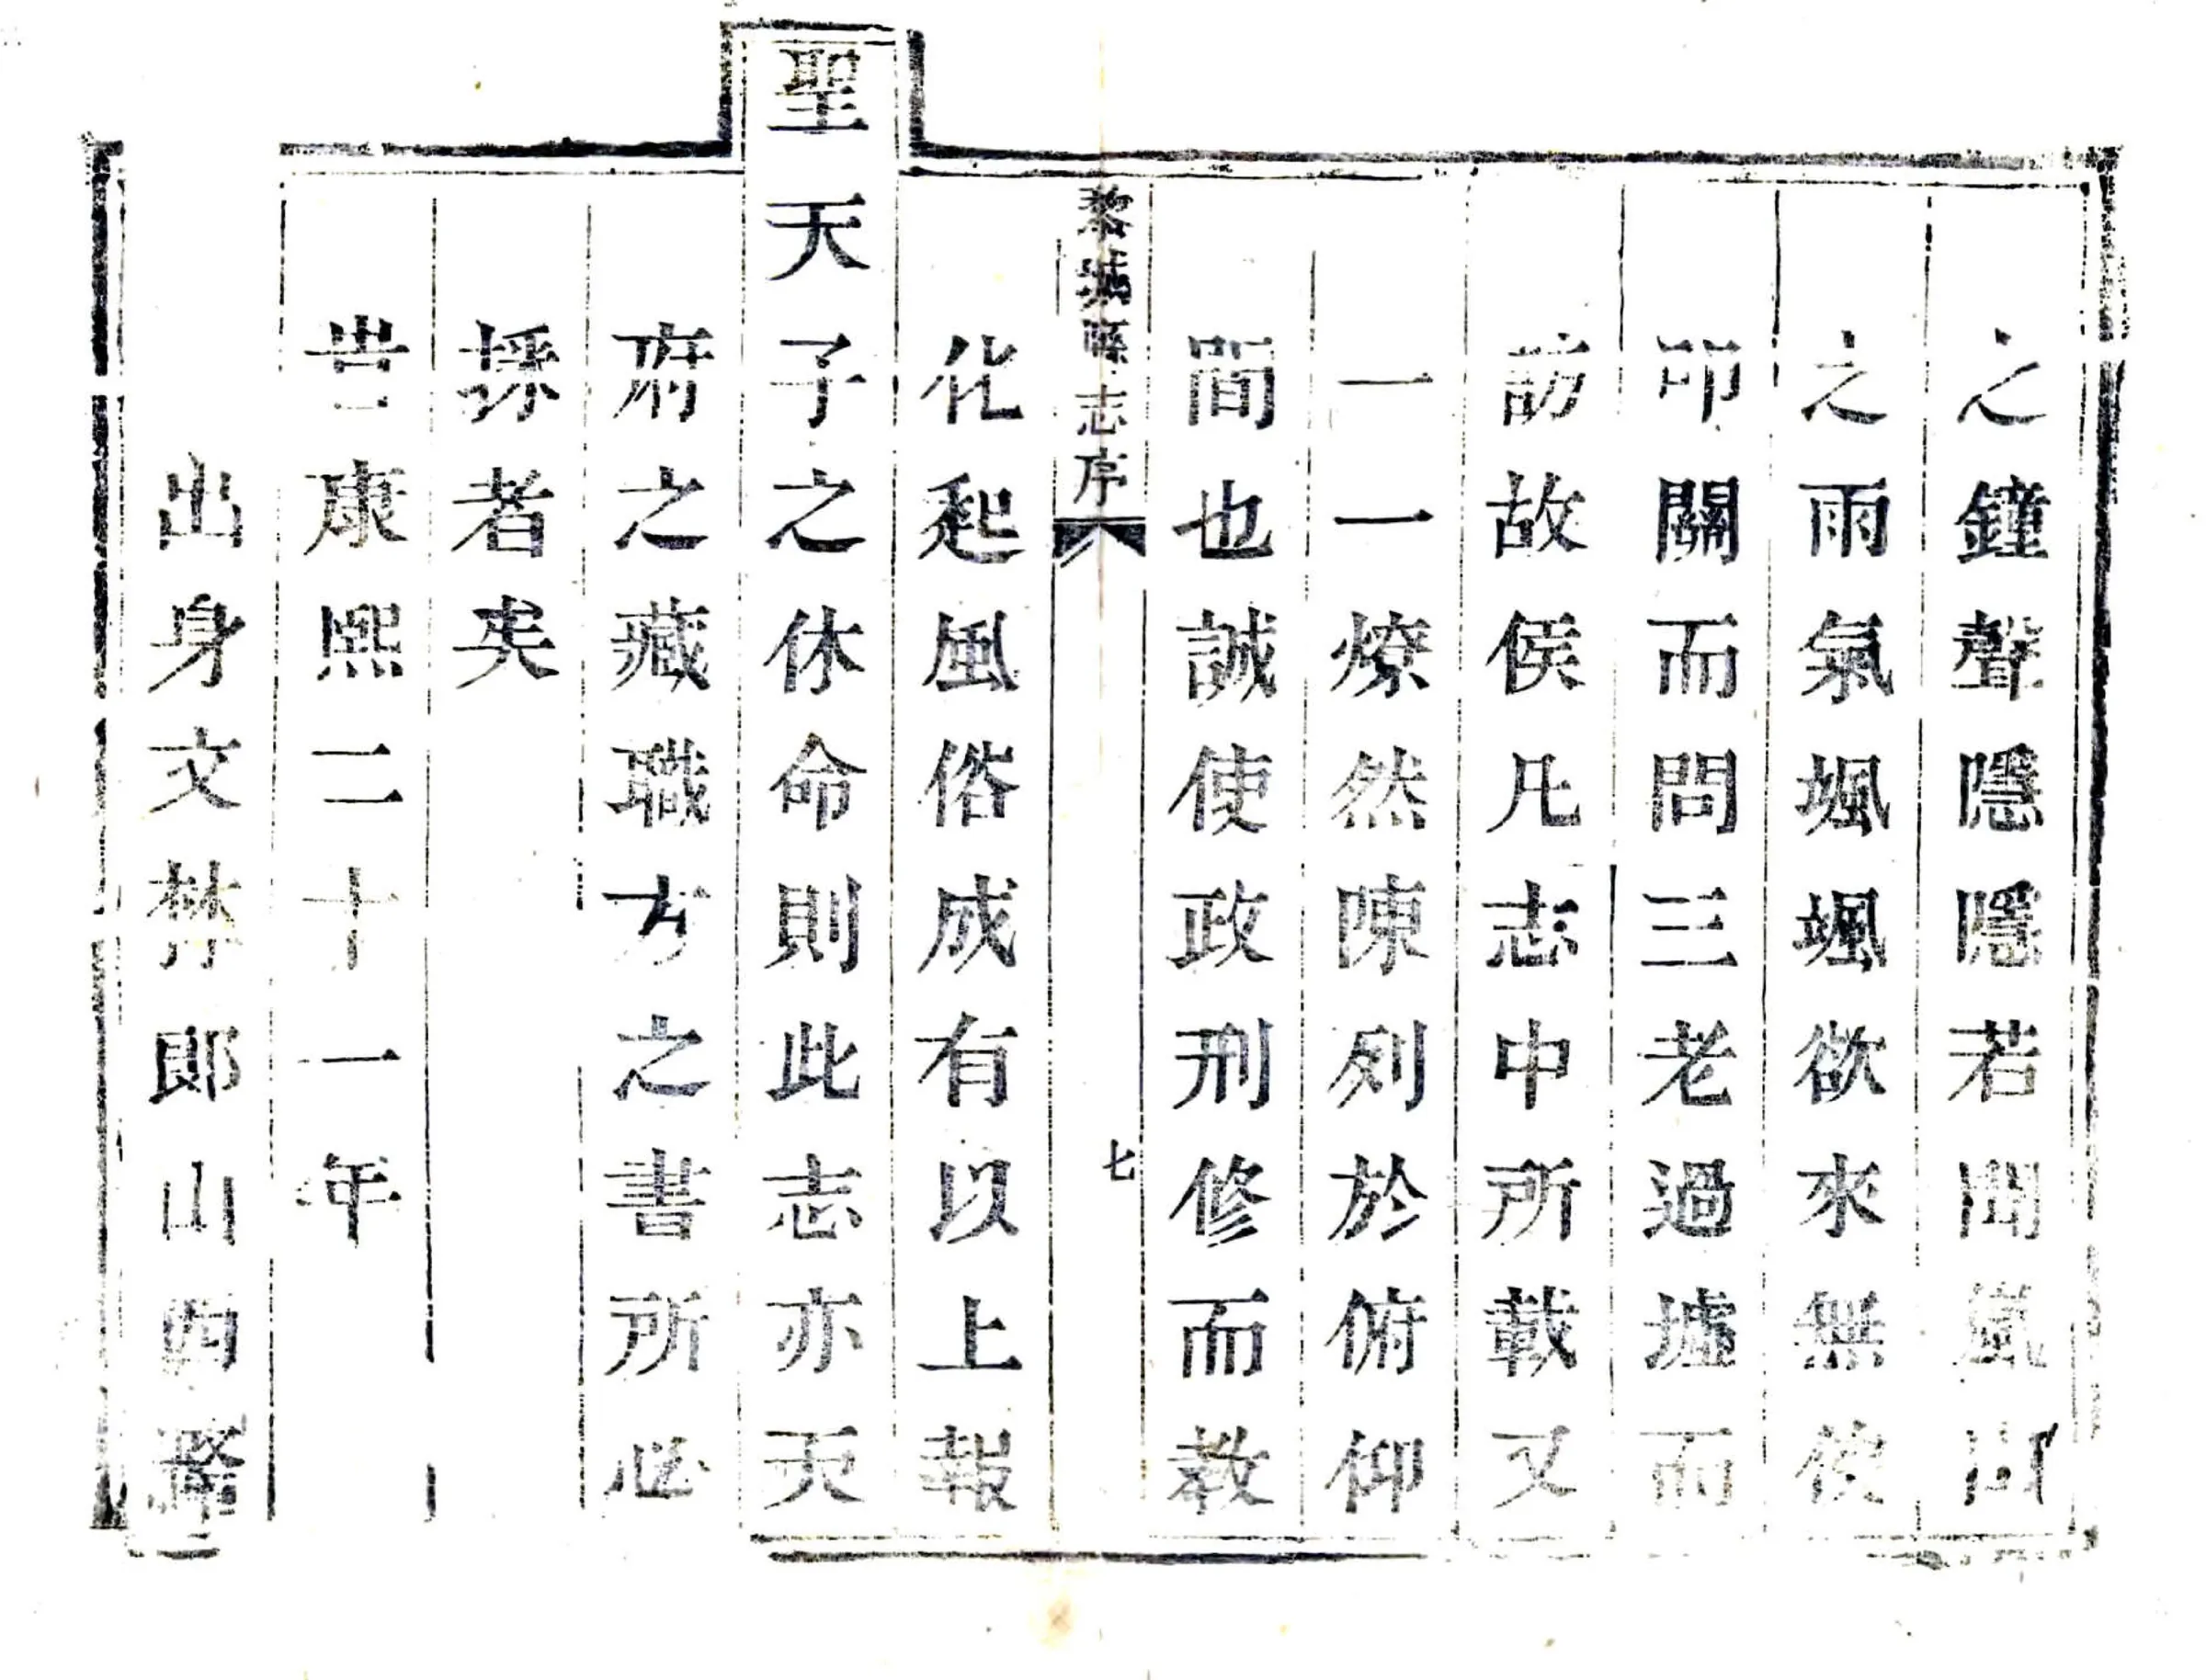 之鐘聲隱隱若聞嵐山
之雨氣颯颯欲來無使
印關而問三老過墟而
訪故侯凡志中所載又
一一燎然陳列於俯仰
間也誠使政刑修而教
黎城縣志序
七
化起風俗成有以上報
聖天子之休命則此志亦天
府之藏職方之書所必
採者矣
旹康熙二十一年
出身文林郎山西潞